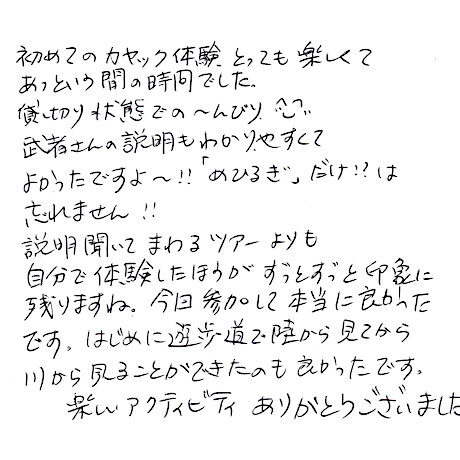 初めてのカヤック体験とっても楽しくて
あっという間の時間でした。
貸し切り状態での〜んびり
武者さんの説明もわかりやすくて
よかったですよ〜!!「めひるぎ」だけ!?は
忘れません!!
説明聞いてまわるツアーよりも
自分で体験したほうがずっとずっと印象に
残りますね。今日参加して本当に良かった
です。はじめに遊歩道で陸から見てから
川から見ることができたのも良かったです。
楽しいアクティビティありがとうございました